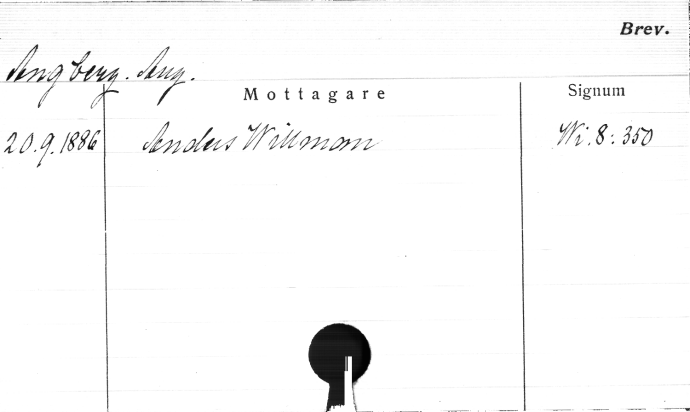 Brev.
Angberg. Aug.
Mottagare
Signum
20.9.1886 Anders Willman Wi.8:350